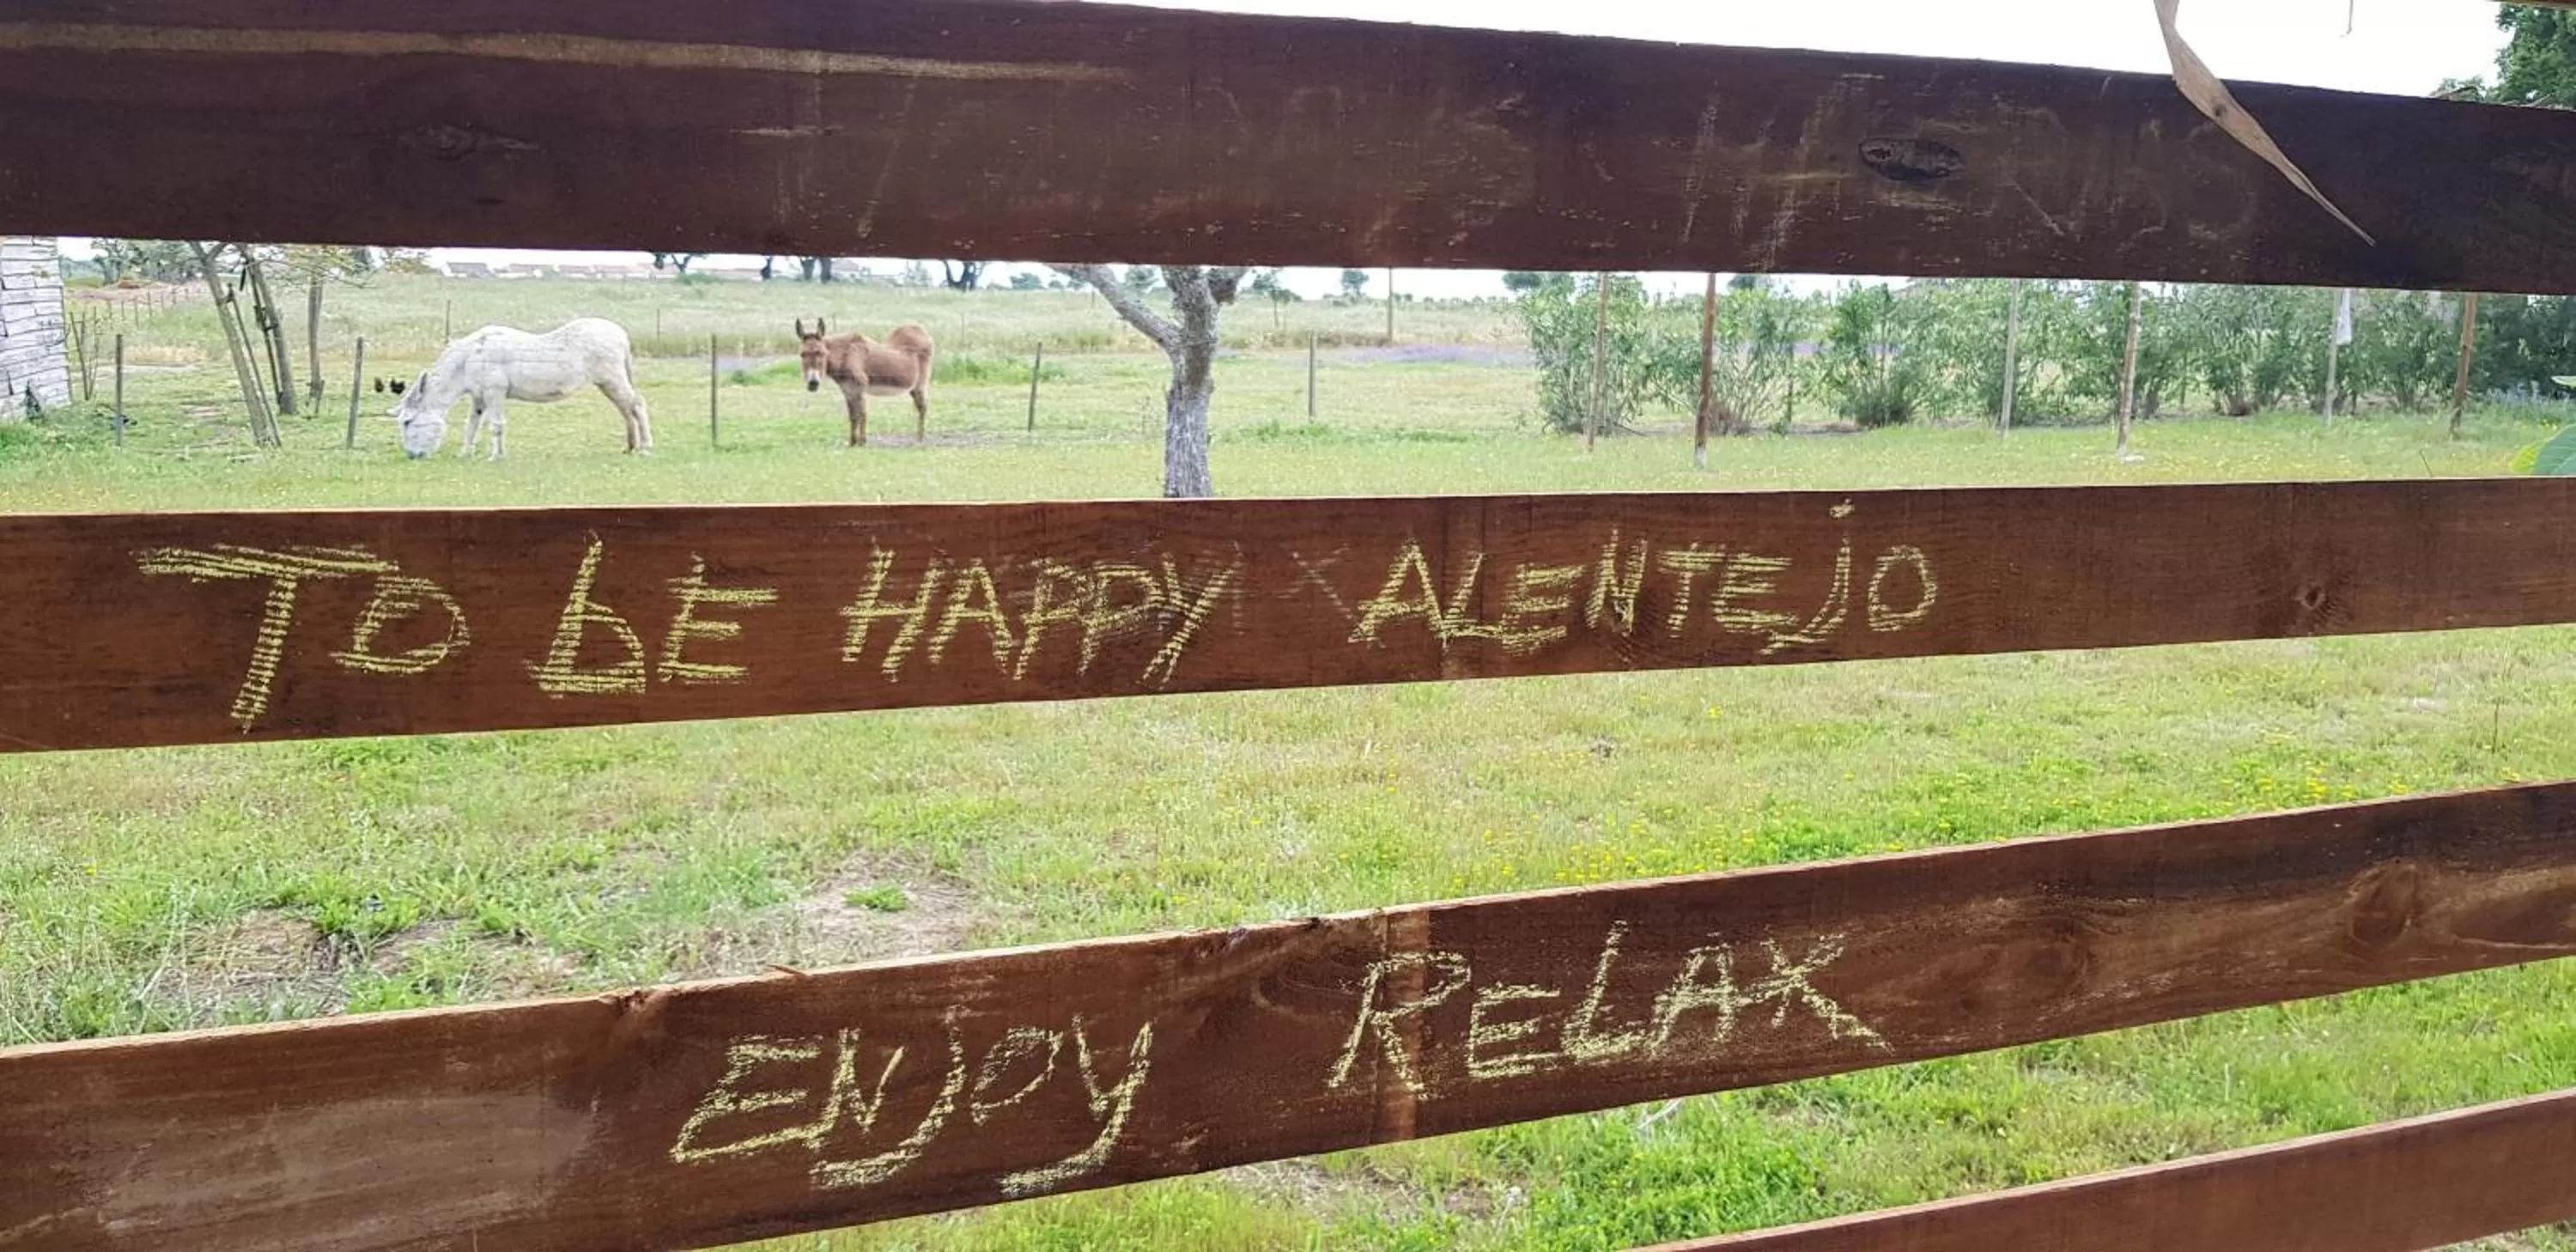 TO bE HAPPY ALENTEjO
ENJOY RELAX